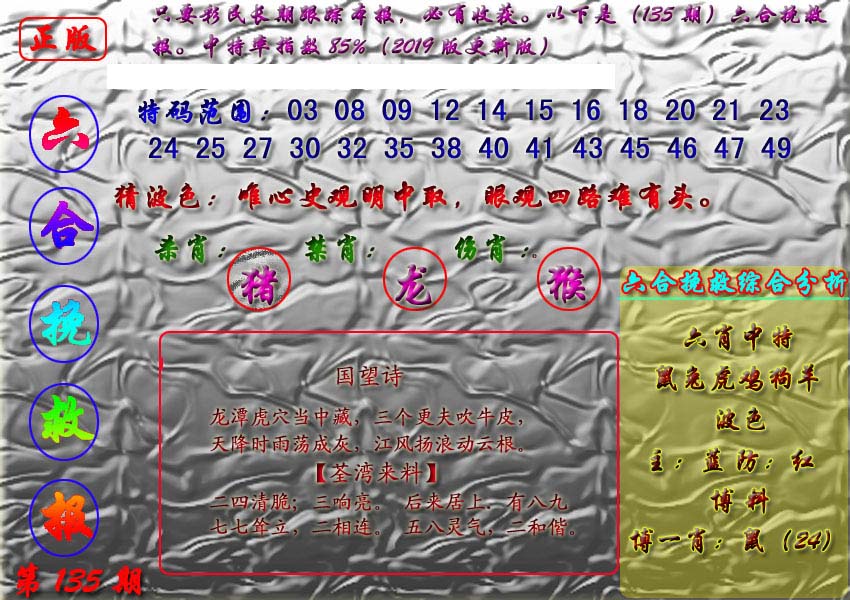 正版
只要彩民长期跟踪本报，必有收获。以下是（135期）六合挽救
报。中特率指数85%（2019版更新版）
六合挽救报
第135期
特码范围：03 08 09 12 14 15 16 18 20 21 23
24 25 27 30 32 35 38 40 41 43 45 46 47 49
猜波色：唯心史观明中取，眼观四路难有头。
杀肖：猪 禁肖：龙 伤肖：猴。
国望诗
龙潭虎穴当中藏，三个更夫吹牛皮，
天降时雨荡成灰，江风扬浪动云根。
【荃湾来料】
二四清脆；三响亮。 后来居上．有八九
七七耸立，二相连。 五八灵气，二和偕。
六合挽救综合分析
六肖中特
鼠兔虎鸡狗羊
波色
主：蓝防：红
博料
博一肖：鼠（24）